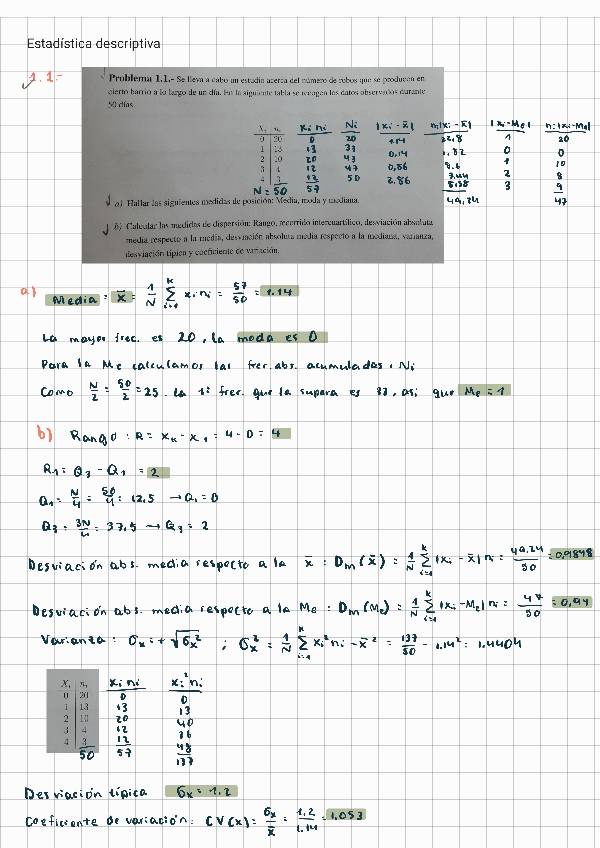 Estadística descriptiva
1.1.-
Problema 1.1.- Se lleva a cabo un estudio acerca del número de robos que se producen en
cierto barrio a lo largo de un día. En la siguiente tabla se recogen los datos observados durante
50 días.
Xi ni xi ni Ni |xi - x̄| ni|xi - x̄| |xi - Me| ni |xi - Me|
0 20 0 20 1.14 22,8 1 20
1 13 13 33 0,14 1,82 0 0
2 10 20 43 0,86 8.6 1 10
3 4 12 47 2 8
4 3 12 50 2.86 3 9
N = 50 57 49,24 47
a) Hallar las siguientes medidas de posición: Media, moda y mediana.
b) Calcular las medidas de dispersión: Rango, recorrido intercuartílico, desviación absoluta
media respecto a la media, desviación absoluta media respecto a la mediana, varianza,
desviación típica y coeficiente de variación.
a) Media = x̄ = 1/N Σ(i=1, K) xi ni = 57/50 = 1.14
La mayor frec. es 20, la moda es 0
Para la Me calculamos las frec. abs. acumuladas, Ni
Como N/2 = 50/2 = 25. La 1ª frec. que la supera es 33, así que Me = 1
b) Rango : R = xk - x1 = 4 - 0 = 4
RI = Q3 - Q1 = 2
Q1 = N/4 = 50/4 = 12.5 → Q1 = 0
Q3 = 3N/4 = 37.5 → Q3 = 2
Desviación abs. media respecto a la x̄ : Dm(x̄) = 1/N Σ(i=1, K) |xi - x̄| ni = 49,24/50 = 0,9848
Desviación abs. media respecto a la Me : Dm(Me) = 1/N Σ(i=1, K) |xi - Me| ni = 47/50 = 0,94
Varianza : σx = +√σx² ; σx² = 1/N Σ(i=1, K) xi² ni - x̄² = 137/50 - 1.14² = 1.4404
Xi ni xi ni xi² ni
0 20 0 0
1 13 13 13
2 10 20 40
3 4 12 36
4 3 12 48
50 57 137
Desviación típica σx = 1.2
Coeficiente de variación : CV(x) = σx/x̄ = 1.2/1.14 = 1,053